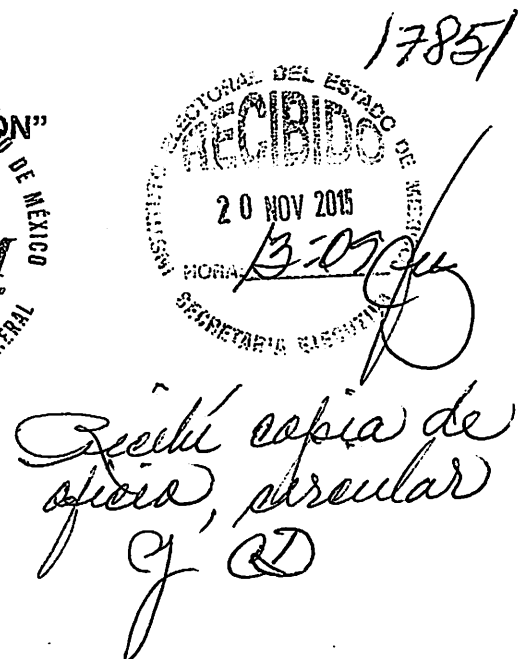 17851
ON"
DE MÉXICO
ERAL
INSTITUTO ELECTORAL DEL ESTADO DE MÉXICO
RECIBIDO
20 NOV 2015
HORA
SECRETARÍA EJECUTIVA
Recibí copia de
oficio, circular
y CD